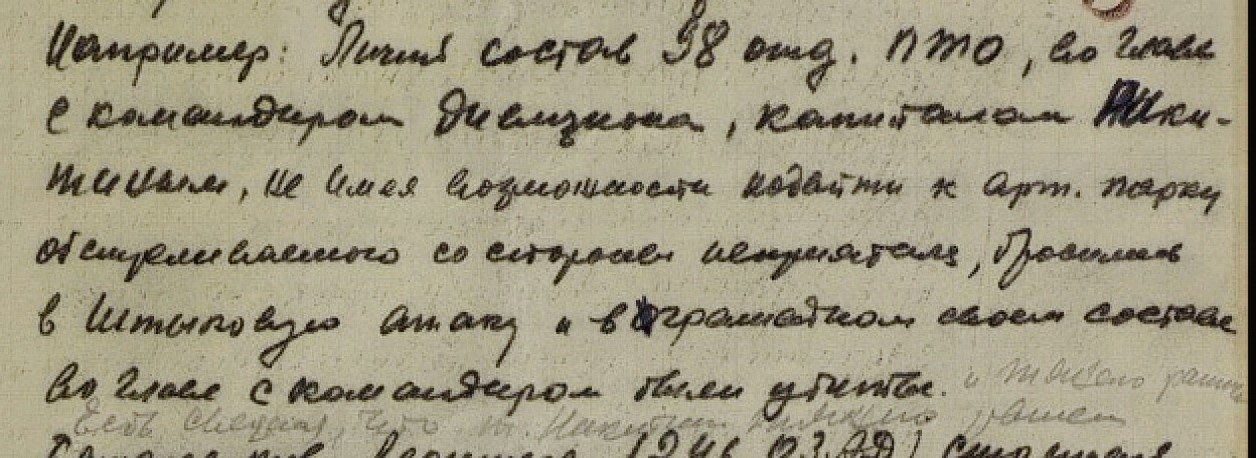 Например: Личный состав 98 отд. ПТО, во главе
с командиром дивизиона, капитаном Ники-
тиным, не имея возможности подойти к арт. парку
обстреливаемого со стороны неприятеля, бросились
в штыковую атаку и в громадном своем составе
во главе с командиром были убиты. и тяжело ранен
Есть сведения, что т. Никитин тяжело ранен